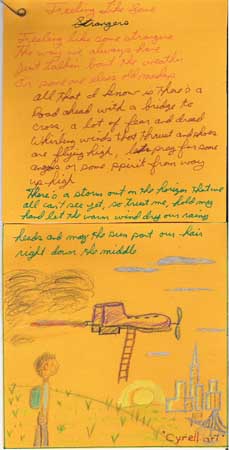 Freeling Like Some
Strangers
Feeling like some strangers
The way we always have
Just talkin' bout the weather
For some one elses old
all that I know is There's a
Road ahead with a bridge to
cross, a lot of fear and dread
Whirling winds that Thrust and
are flying high, pray for some
angels or some spirit from way
up high
There's a storm out on the horizon That we
all can't see yet, so trust me, hold my
hand let the warm wind dry our rainy
heads and may the sun part our hair
right down the middle
"Cyrell art"